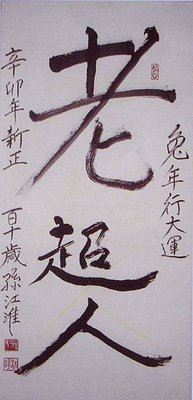 兔年行大運
老超人
辛卯年新正
百十歲孫江淮